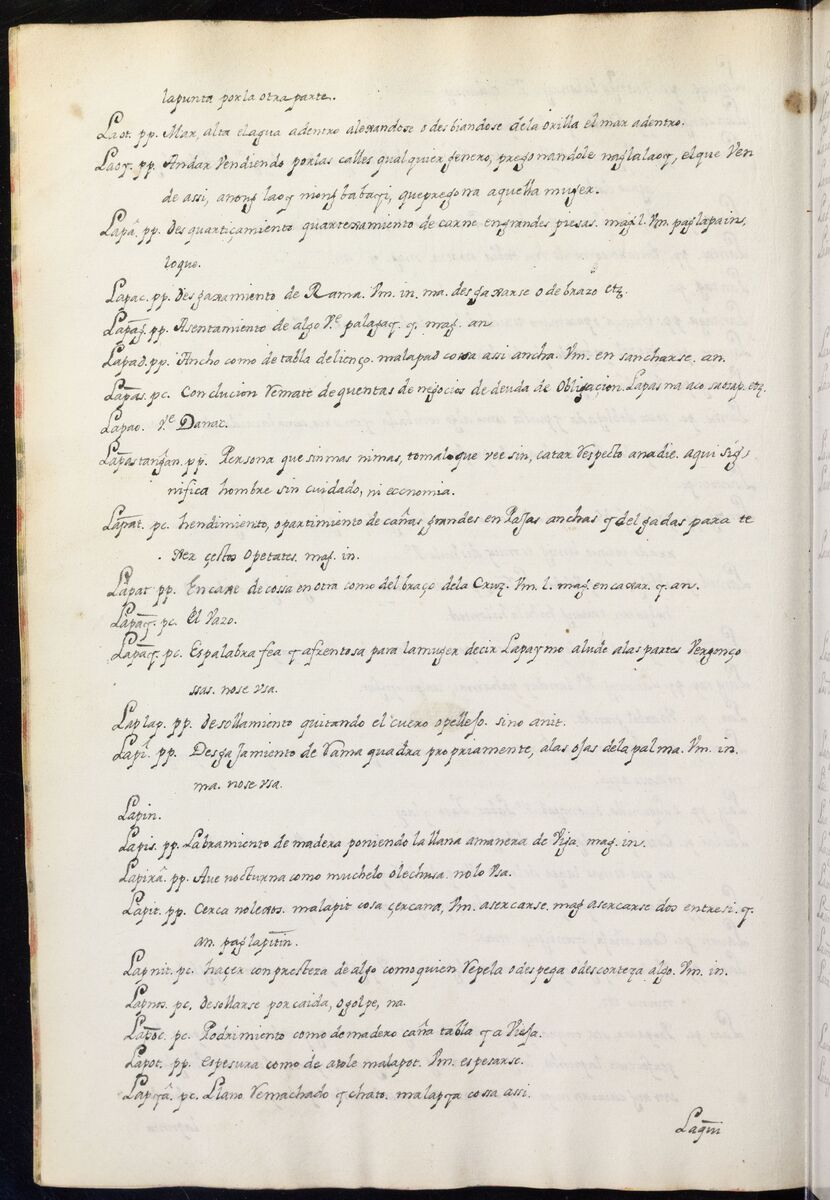 la punta por la otra parte.
Laot. pp. Mar, alta el agua adentro alexandose o desbiandose de la orilla el mar adentro.
Laoy. pp. Andar Vendiendo por las calles qualquier genero, pregonandole naglalaoy, el que Ven
de assi, anong laoy niong babayi, que pregona aquella muger.
Lapâ. pp. Desquartiçamiento quartexamiento de carne en grandes piesas. mag. l. Vm. paglapain,
loque.
Lapac. pp. Desgaxamiento de Rama. Vm. in. ma. desgaxarse o de brazo etz.
Lapag. pp. Asentamiento de algo Ve palagay. y. mag. an
Lapad. pp. Ancho como de tabla de lienço. malapad cossa assi ancha. Vm. en sancharse. an.
Lapas. pc. Conclucion Remate de quentas de negocios de deuda de Obligaçion. Lapas na aco sa otap. etz.
Lapao. Ve Danac.
Lapastangan. pp. Persona que sin mas nimas, toma lo que vee sin, catar Respecto a nadie. aqui sig,
nifica hombre sin cuidado, ni economia.
Lapat. pc. hendimiento, o partimiento de cañas, grandes en Rajas anchas y delgadas para te
xer çestos o petates. mag. in.
Lapat pp. Encaxe de cossa en otra como del braço de la Cruz. Vm. l. mag. encaxar. y. an.
Lapay. pc. El Vazo.
Lapay. pc. Es palabra fea y afrentosa para la muger decir Lapay mo alude a las partes Vergonço
ssas. no se vsa.
Laplap. pp. Desollamiento quitando el cuero o pellejo. sino anit.
Lapî. pp. Desgajamiento de Rama quadra propriamente, a las ojas de la palma. Vm. in.
ma. no se vsa.
Lapin.
Lapis. pp. Labramiento de madera poniendo la llana a manera de Vija. mag. in.
Lapixâ. pp. Aue nocturna como muchelo o lechusa. no lo Vsa.
Lapit. pp. Cerca no lexos. malapit cosa çercana, Vm. asercarse. mag asercarse dos entre si. y.
an. paglapitin.
Lapnit. pc. haçer con presteza de algo como quien Repela o despega o descorteza algo. Vm. in.
Lapnos. pc. desollarse por caida, o golpe, na.
Lapoc. pc. Podrimiento como de madero caña tabla y a Vieja.
Lapot. pp. espesura como de atole malapot. Vm. espesarse.
Lapyâ. pc. Llano Remachado y chato. malapya cossa assi.
Laqui